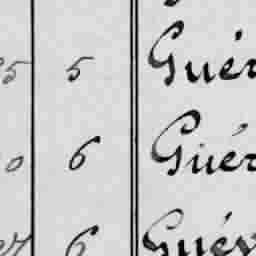 5 5 Guér
0 6 Guér
27 6 Guér